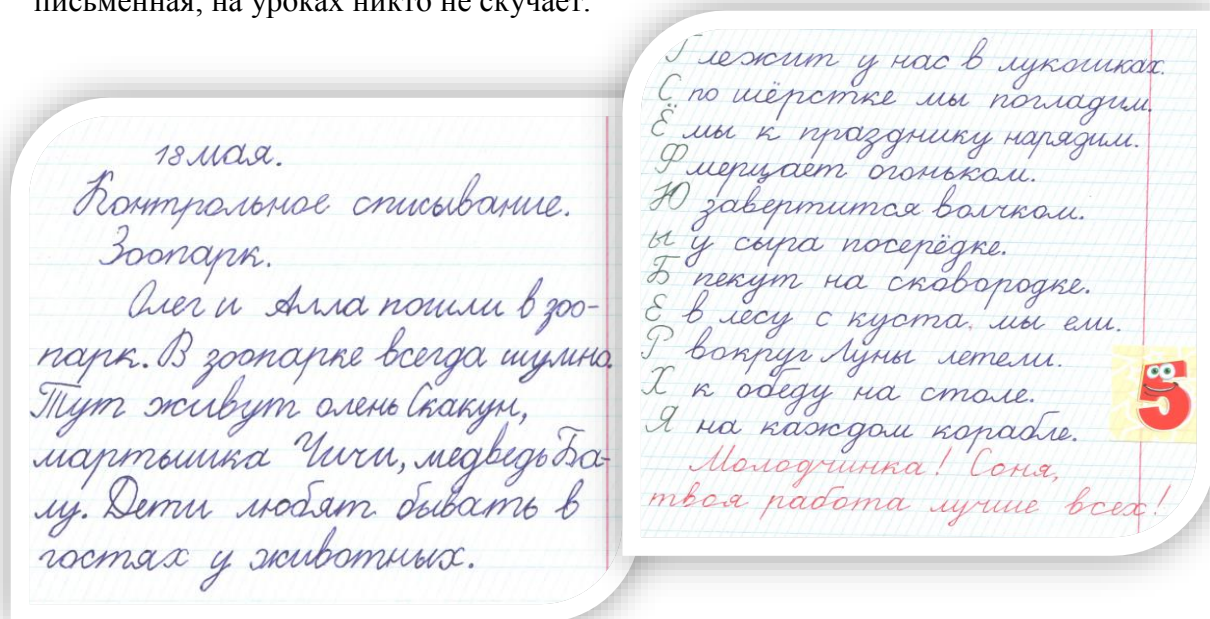 письменная, на уроках никто не скучает.
18 мая.
Контрольное списывание.
Зоопарк.
Олег и Алла пошли в зоо-
парк. В зоопарке всегда шумно.
Тут живут олень Скакун,
мартышка Чичи, медведь Ба-
лу. Дети любят бывать в
гостях у животных.
Г лежит у нас в лукошках.
С по шёрстке мы погладим.
Ё мы к празднику нарядим.
Ф мерцает огоньком.
Ю завертится волчком.
ы у сыра посерёдке.
Б пекут на сковородке.
Е в лесу с куста мы ели.
Р вокруг Луны летели.
Х к обеду на столе.
Я на каждом корабле.
5
Молодчинка! Соня,
твоя работа лучше всех!